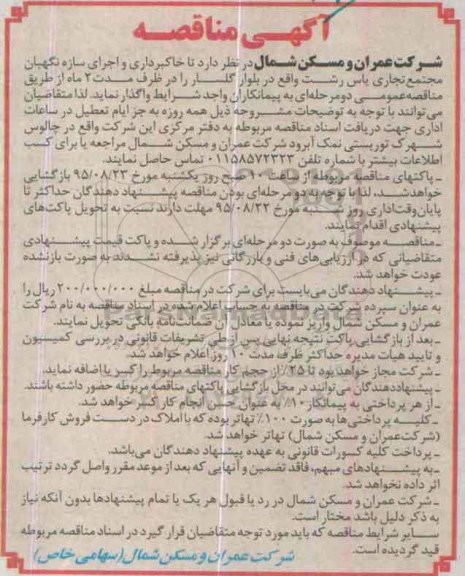 آگهی مناقصه
شرکت عمران و مسکن شمال در نظر دارد تا خاکبرداری و اجرای سازه نگهبان
مجتمع تجاری یاس رشت واقع در بلوار گلسار را در ظرف مدت ۲ ماه از طریق
مناقصه عمومی دو مرحله‌ای به پیمانکاران واجد شرایط واگذار نماید. لذا متقاضیان
می‌توانند با توجه به توضیحات مشروحه ذیل همه روزه به جز ایام تعطیل در ساعات
اداری جهت دریافت اسناد مناقصه مربوطه به دفتر مرکزی این شرکت واقع در چالوس
شهرک توریستی نمک آبرود شرکت عمران و مسکن شمال مراجعه یا برای کسب
اطلاعات بیشتر با شماره تلفن ۰۱۱۵۸۵۷۲۳۲۳ تماس حاصل نمایند.
ـ پاکتهای مناقصه مربوطه از ساعت ۱۰ صبح روز یکشنبه مورخ ۹۵/۰۸/۲۳ بازگشایی
خواهد شد، لذا با توجه به دو مرحله‌ای بودن مناقصه پیشنهاد دهندگان حداکثر تا
پایان وقت اداری روز شنبه مورخ ۹۵/۰۸/۲۲ مهلت دارند نسبت به تحویل پاکت‌های
پیشنهادی اقدام نمایند.
ـ مناقصه موصوف به صورت دو مرحله‌ای برگزار شده و پاکت قیمت پیشنهادی
متقاضیانی که در ارزیابی‌های فنی و بازرگانی نیز پذیرفته نشدند به صورت باز نشده
عودت خواهد شد.
ـ پیشنهاد دهندگان می‌بایست برای شرکت در مناقصه مبلغ ۲۰۰/۰۰۰/۰۰۰ ریال را
به عنوان سپرده شرکت در مناقصه به حساب اعلام شده در اسناد مناقصه به نام شرکت
عمران و مسکن شمال واریز نموده یا معادل آن ضمانت‌نامه بانکی تحویل نمایند.
ـ بعد از بازگشایی پاکت نتیجه نهایی پس از طی تشریفات قانونی در بررسی کمیسیون
و تایید هیات مدیره حداکثر ظرف مدت ۱۰ روز اعلام خواهد شد.
ـ شرکت مجاز خواهد بود تا ۲۵٪ از حجم کار مناقصه مربوط را کسر یا اضافه نماید.
ـ پیشنهاد دهندگان می‌توانند در محل بازگشایی پاکتهای مناقصه مربوطه حضور داشته باشند.
ـ از هر پرداختی به پیمانکار ۱۰٪ به عنوان حسن انجام کار کسر خواهد شد.
ـ کلیه پرداختی‌ها به صورت ۱۰۰٪ تهاتر بوده که با املاک در دست فروش کارفرما
(شرکت عمران و مسکن شمال) تهاتر خواهد شد.
ـ پرداخت کلیه کسورات قانونی به عهده پیشنهاد دهندگان می‌باشد.
ـ به پیشنهادهای مبهم، فاقد تضمین و آنهایی که بعد از موعد مقرر واصل گردد ترتیب
اثر داده نخواهد شد.
ـ شرکت عمران و مسکن شمال در رد یا قبول هر یک یا تمام پیشنهادها بدون آنکه نیاز
به ذکر دلیل باشد مختار است.
سایر شرایط مناقصه که باید مورد توجه متقاضیان قرار گیرد در اسناد مناقصه مربوطه
قید گردیده است.
شرکت عمران و مسکن شمال (سهامی خاص)